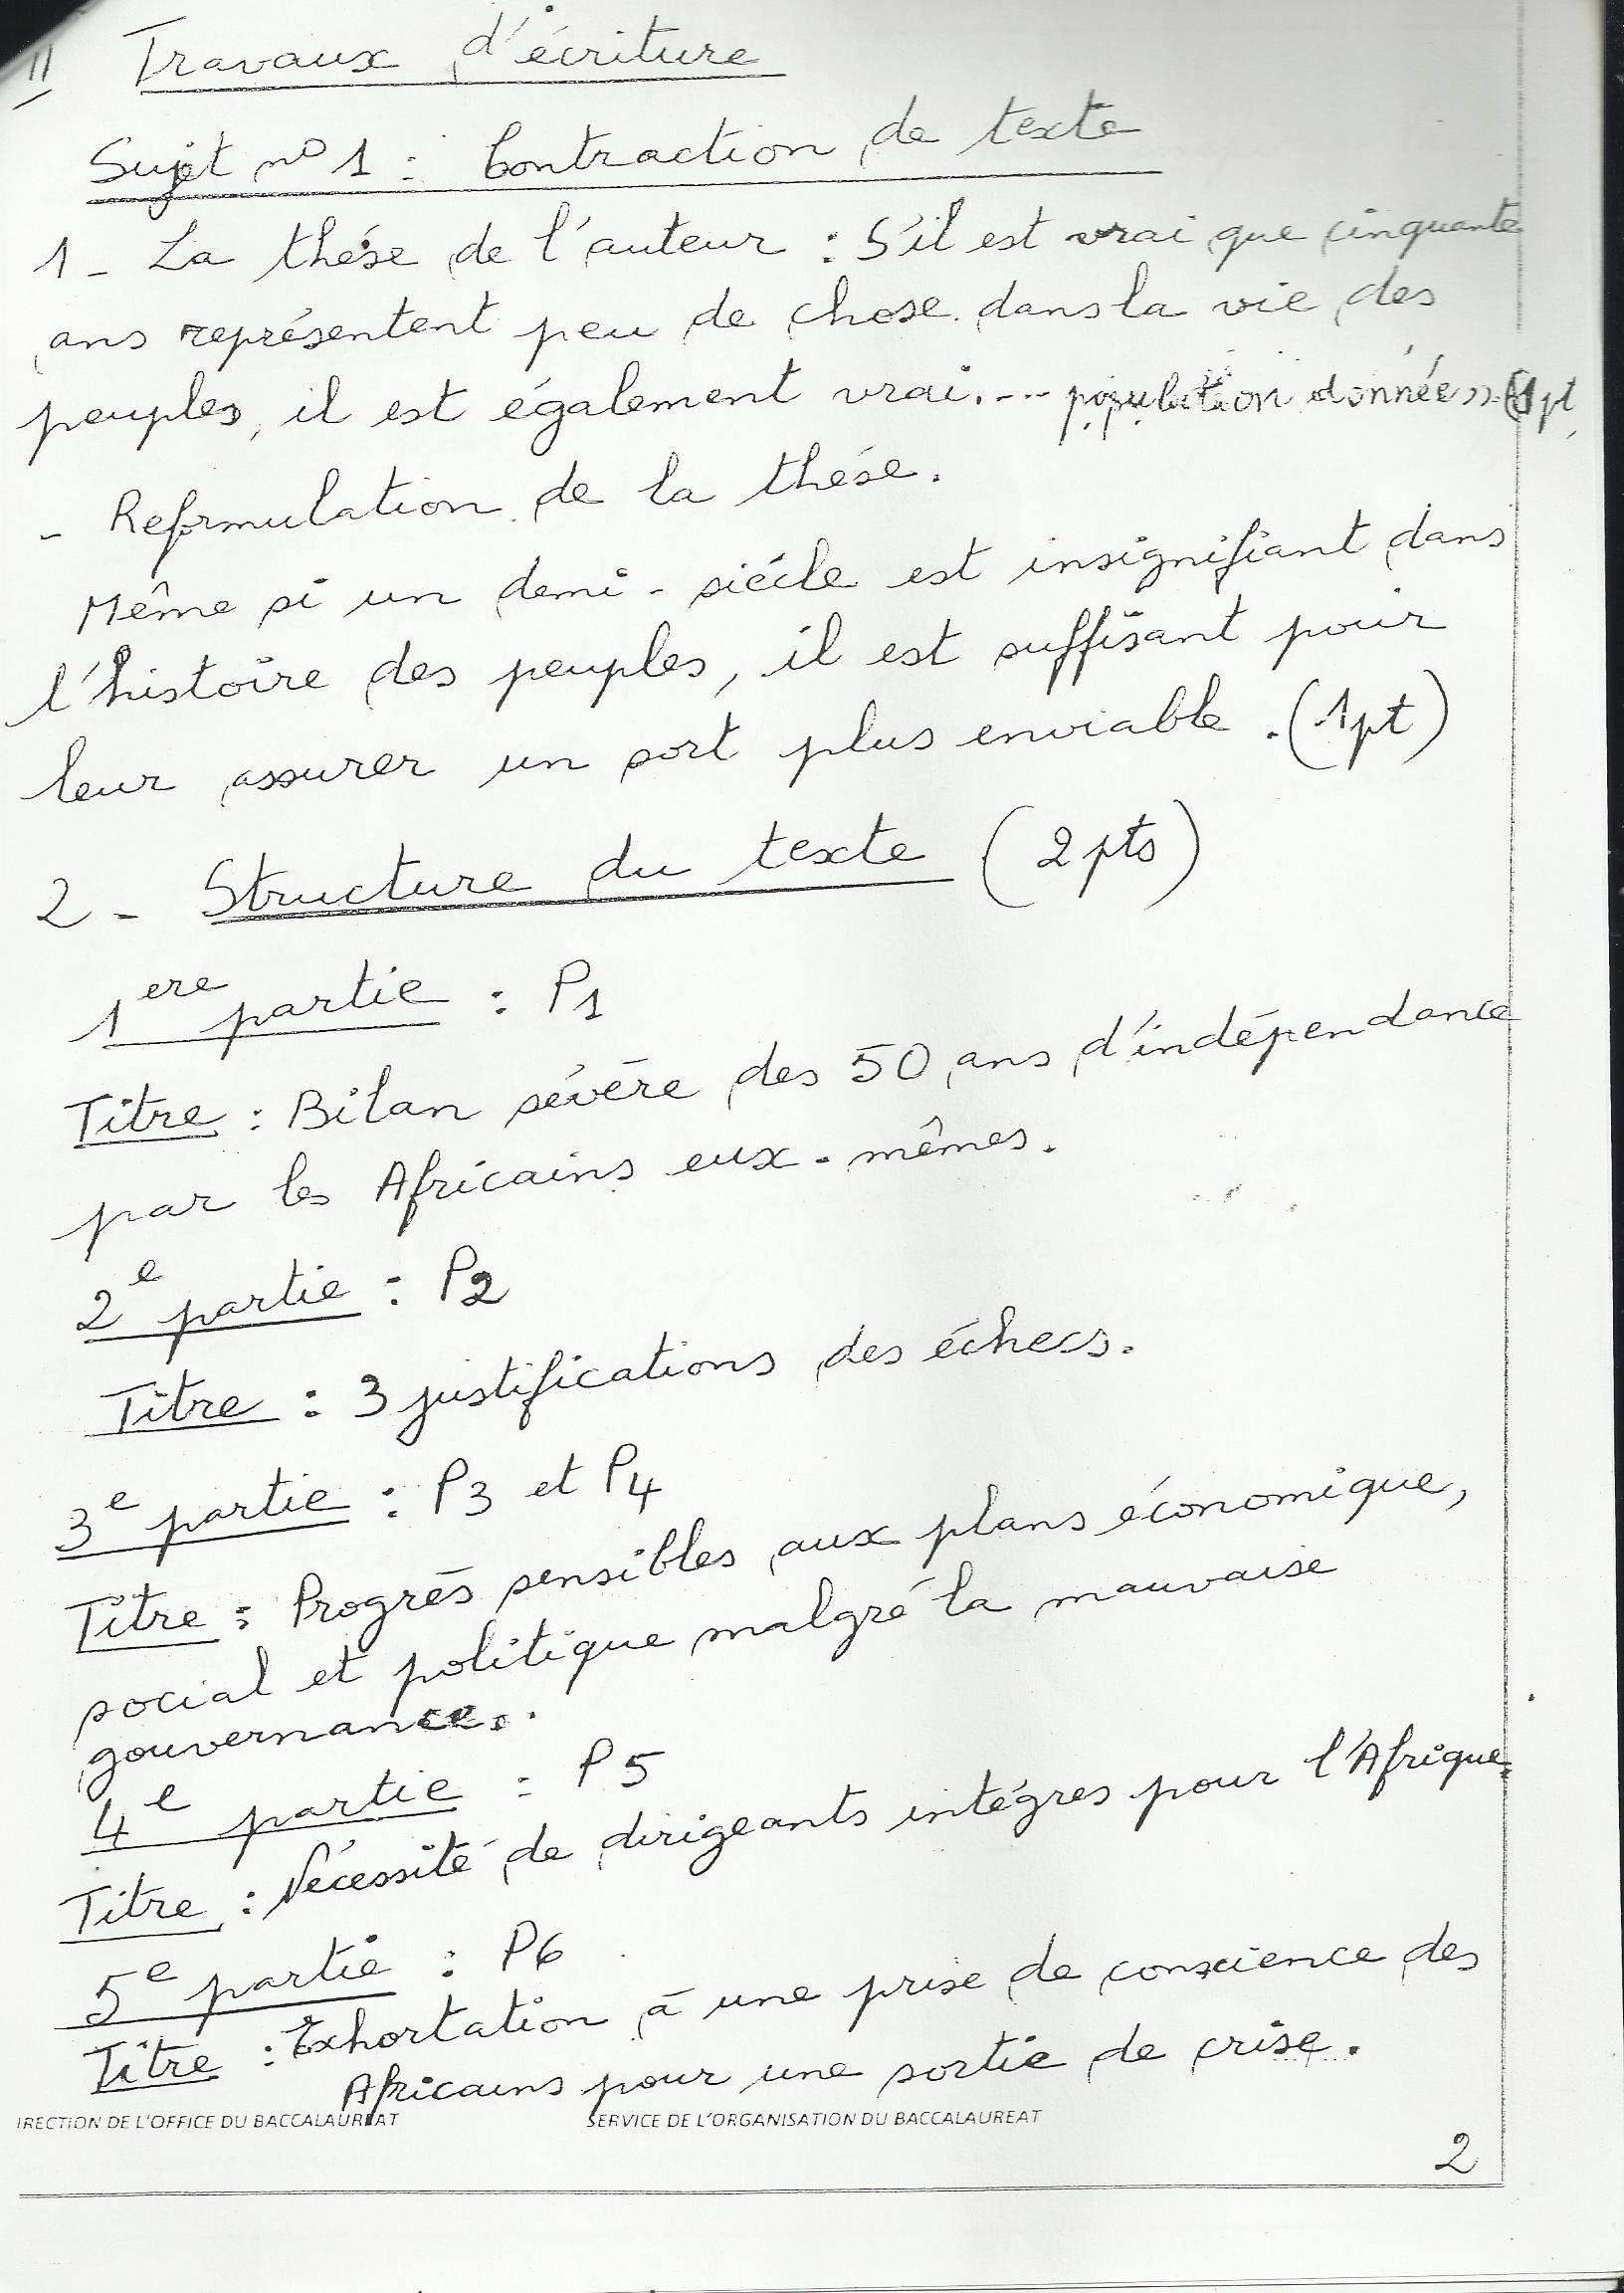 II Travaux d'écriture
Sujet n° 1 : Contraction de texte
1 - La thèse de l'auteur : S'il est vrai que cinquante
ans représentent peu de chose dans la vie des
peuples, il est également vrai.... population donnée». (1pt
- Reformulation de la thèse.
Même si un demi-siècle est insignifiant dans
l'histoire des peuples, il est suffisant pour
leur assurer un sort plus enviable. (1pt)
2 - Structure du texte (2pts)
1ere partie : P1
Titre : Bilan sévère des 50 ans d'indépendance
par les Africains eux-mêmes.
2e partie : P2
Titre : 3 justifications des échecs.
3e partie : P3 et P4
Titre : Progrès sensibles aux plans économique,
social et politique malgré la mauvaise
gouvernance.
4e partie : P5
Titre : Nécessité de dirigeants intègres pour l'Afrique.
5e partie : P6
Titre : Exhortation à une prise de conscience des
Africains pour une sortie de crise.
IRECTION DE L'OFFICE DU BACCALAUREAT SERVICE DE L'ORGANISATION DU BACCALAUREAT
2